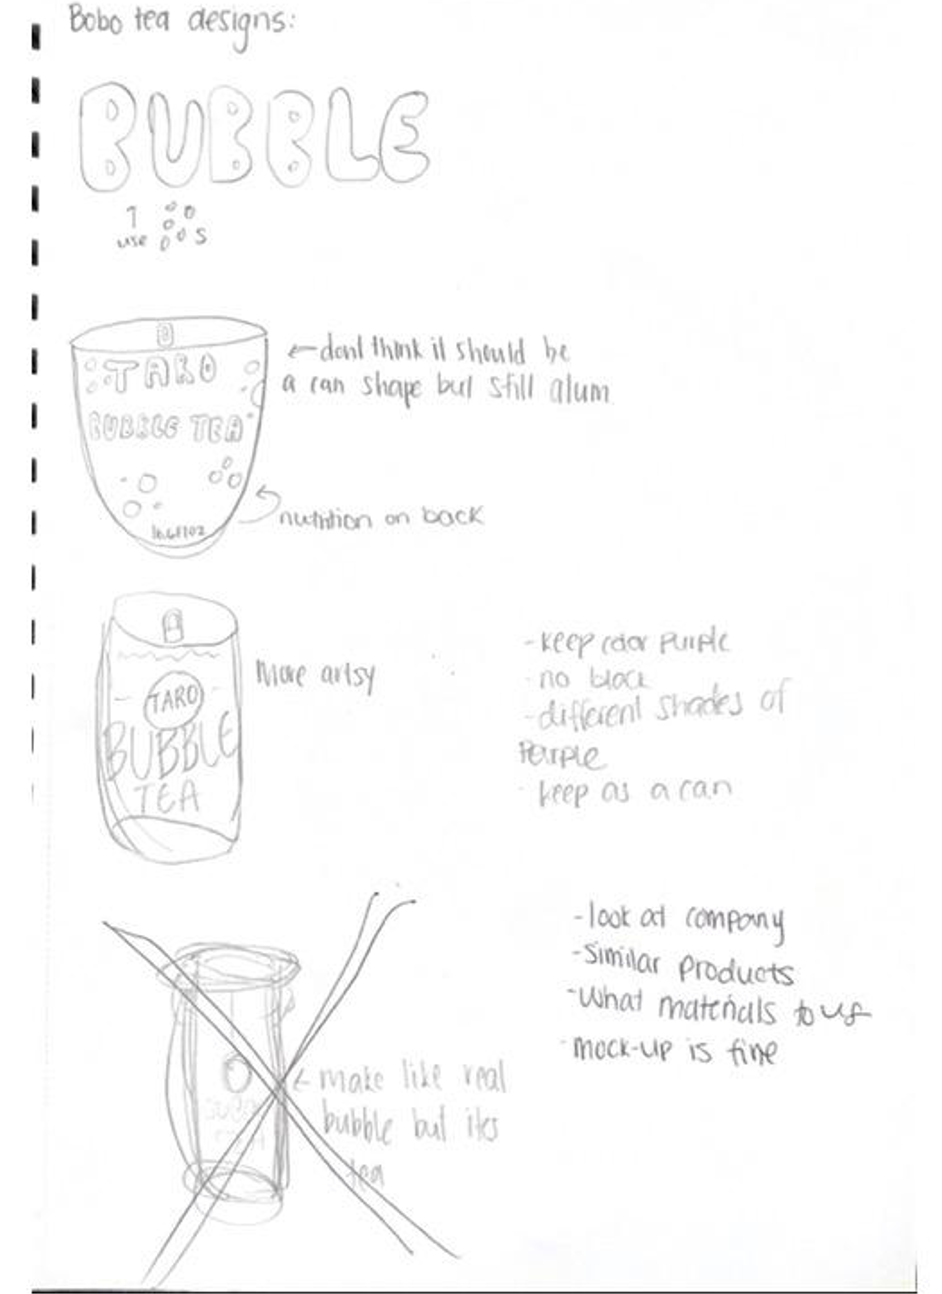 Bobo tea designs:
BUBBLE
↑
use s
TARO
BUBBLE TEA
←dont think it should be
a can shape but still alum
nutrition on back
More artsy
TARO
BUBBLE
TEA
-keep color purple
- no black
-different shades of
Purple
- keep as a can
-look at company
-similar products
-What materials to use
-mock-up is fine
← make like real
bubble but its
tea